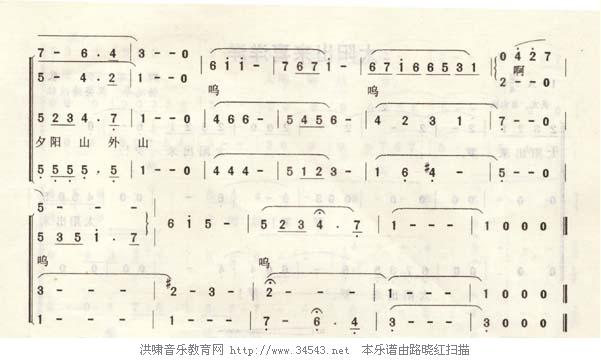 7 - 6 . 4 | 3 - - 0 | 6 i i - | 7 6 7 i - | 6 7 i 6 6 5 3 1 | 0 4 2 7
啊
5 - 4 2 1 - - 0 2 - - 0
呜 呜
5 2 3 4 . 7 | 1 - - 0 | 4 6 6 - | 5 4 5 6 - | 4 2 3 1 | 7 - - 0
夕阳 山 外 山
5 5 5 5 . 5 | 1 - - 0 | 4 4 4 - | 5 1 2 3 - | 1 6 #4 - | 5 - - 0
5 - - -
6 i 5 - | 5 2 3 4 . 7 | 1 - - - | 1 0 0 0
5 3 5 i . 7
呜 呜
3 - - - | #2 - 3 - | 2 - - - | 1 - - - | 1 0 0 0
1 - - - | 1 - - - | 7 - 6 . 4 | 3 - - - | 3 0 0 0
洪啸音乐教育网 http://www.34543.net 本乐谱由路晓红扫描